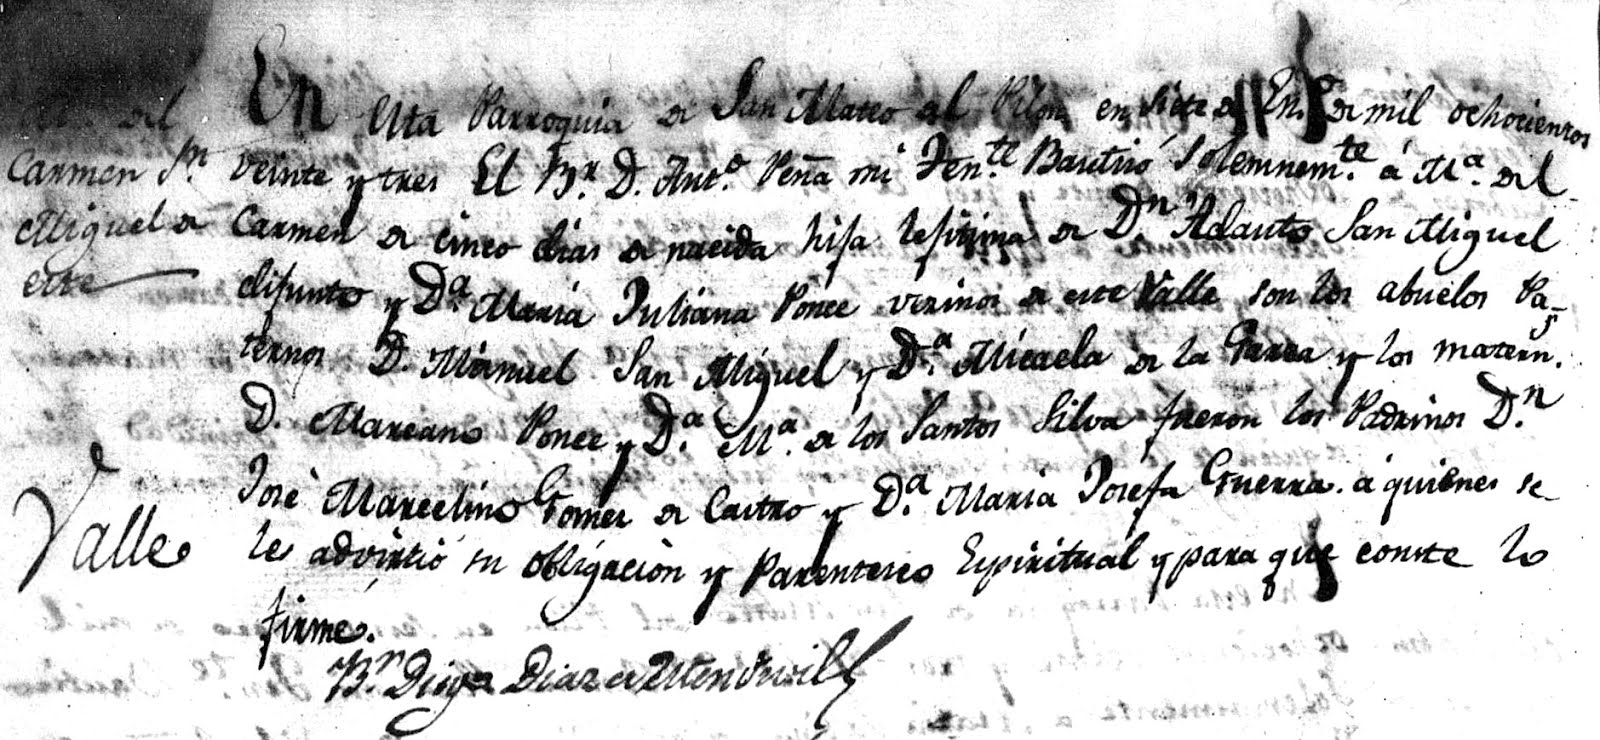 Mª. del
Carmen Sn.
Miguel de
este
Valle
En esta Parroquia de San Mateo del Pilon en siete de Enº. de mil ochocientos
veinte y tres El Br. D. Antº. Peña mi Tente. Bautisó solemnemte. á Mª. del
Carmen de cinco dias de nacida hija lejitima de Dn. Adauto San Miguel
difunto y Dª. Maria Juliana Ponce vezinos de este Valle son los abuelos Pa-
ternos D. Manuel San Miguel y Dª. Micaela de la Garza y los materns.
D. Mareano Ponce y Dª. Mª. de los Santos Silva fueron los Padrinos Dn.
José Marcelino Gomez de Castro y Dª. Maria Josefa Guerra. á quienes se
le advirtió su obligacion y Parentesco Espiritual y para que conste lo
firmé.
Br. Diego Diaz de